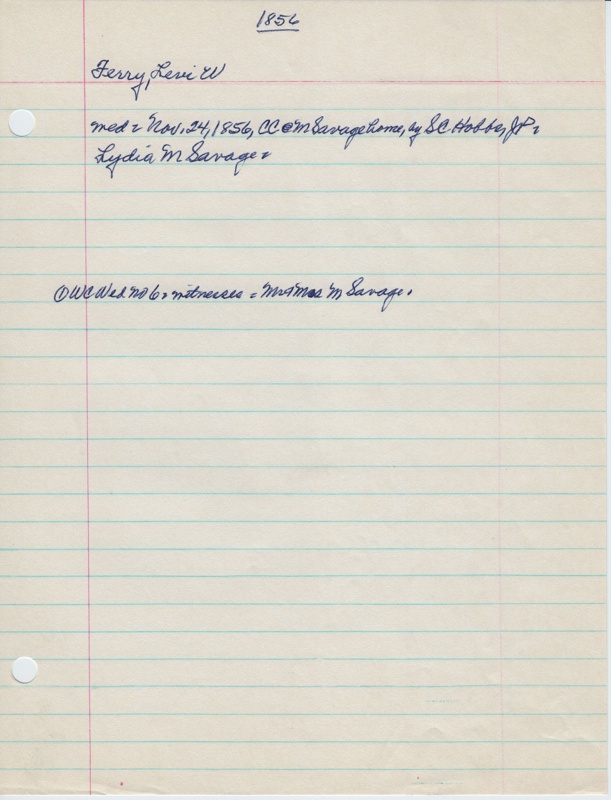 1856
Ferry, Levi W
med = Nov. 24, 1856, CC @ M Savage home, by S C Hobbs, JP =
Lydia M Savage =
① WC Wed. No 6 = witnesses = Mr + Mrs M Savage.